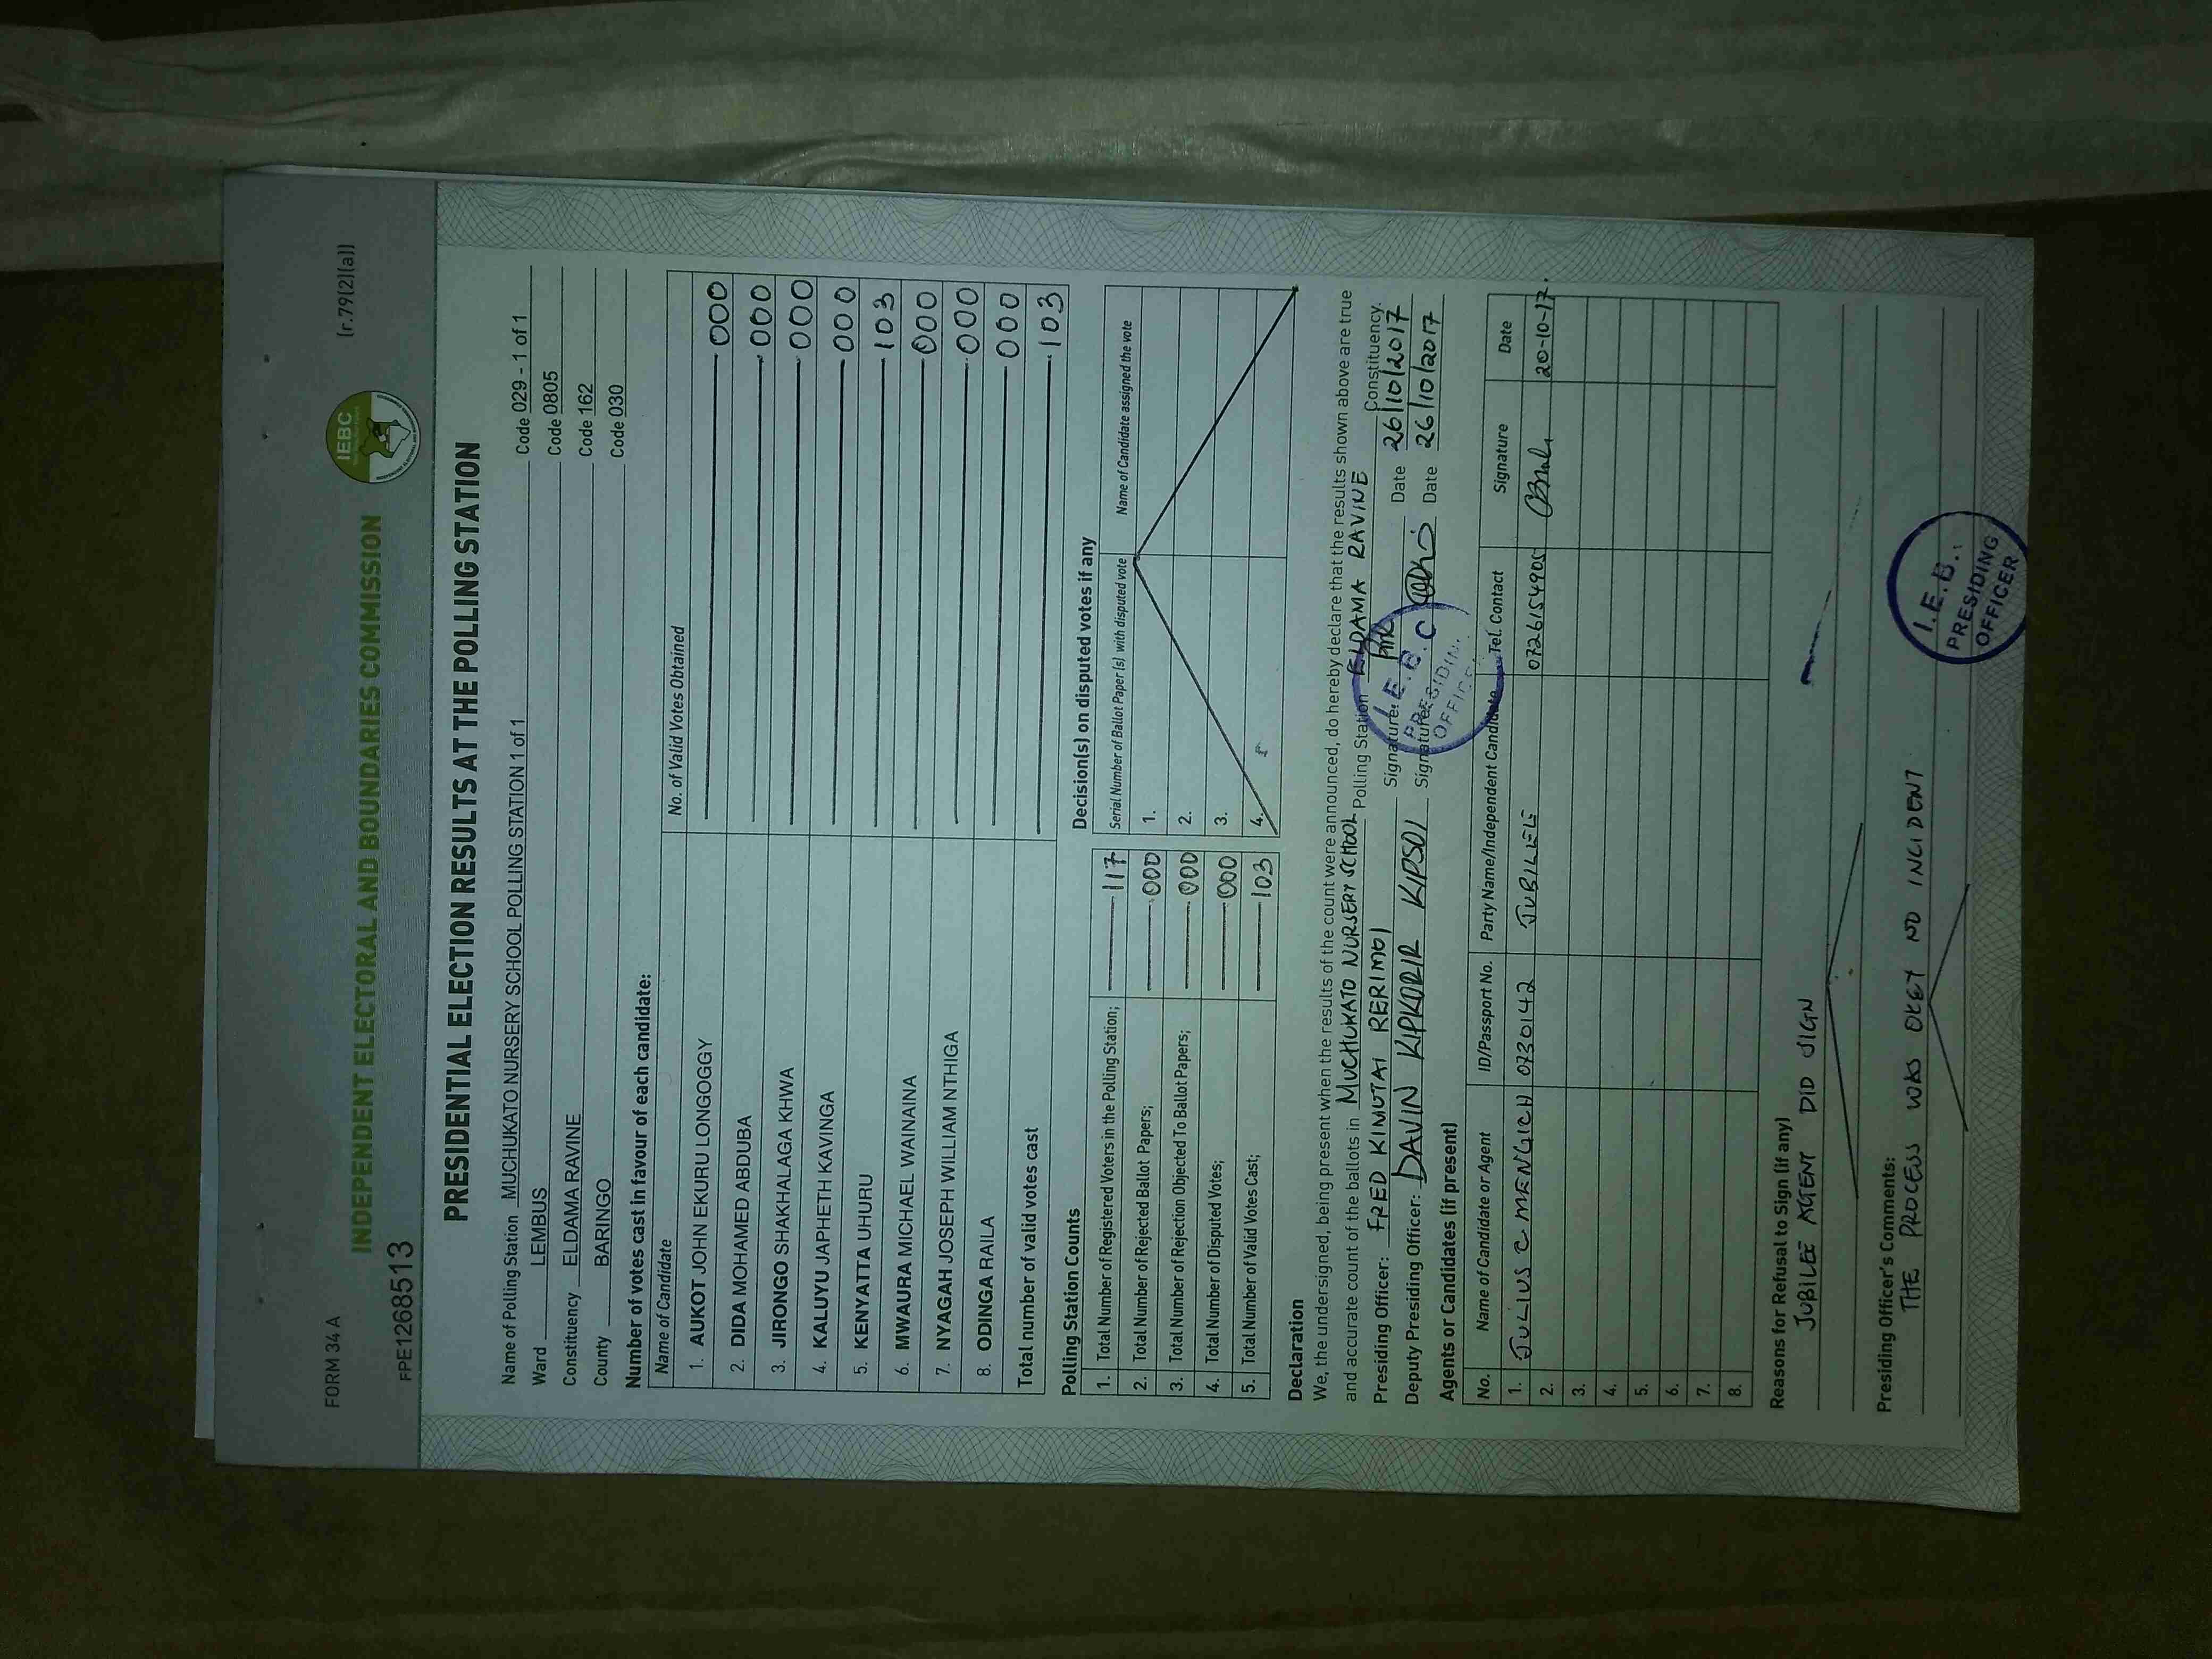 FORM 34 A
(r.79(2)(a))
IEBC
INDEPENDENT ELECTORAL AND BOUNDARIES COMMISSION
FPE1268513
PRESIDENTIAL ELECTION RESULTS AT THE POLLING STATION
Name of Polling Station MUCHUKATO NURSERY SCHOOL POLLING STATION 1 of 1 Code 029 - 1 of 1
Ward LEMBUS Code 0805
Constituency ELDAMA RAVINE Code 162
County BARINGO Code 030
Number of votes cast in favour of each candidate:
Name of Candidate No. of Valid Votes Obtained
1. AUKOT JOHN EKURU LONGOGGY 000
2. DIDA MOHAMED ABDUBA 000
3. JIRONGO SHAKHALAGA KHWA 000
4. KALUYU JAPHETH KAVINGA 000
5. KENYATTA UHURU 103
6. MWAURA MICHAEL WAINAINA 000
7. NYAGAH JOSEPH WILLIAM NTHIGA 000
8. ODINGA RAILA 000
Total number of valid votes cast 103
Polling Station Counts
1. Total Number of Registered Voters in the Polling Station; 117
2. Total Number of Rejected Ballot Papers; 000
3. Total Number of Rejection Objected To Ballot Papers; 000
4. Total Number of Disputed Votes; 000
5. Total Number of Valid Votes Cast; 103
Decision(s) on disputed votes if any
Serial Number of Ballot Paper (s) with disputed vote Name of Candidate assigned the vote
1.
2.
3.
4.
Declaration
We, the undersigned, being present when the results of the count were announced, do hereby declare that the results shown above are true
and accurate count of the ballots in MUCHUKATO NURSERY SCHOOL Polling Station ELDAMA RAVINE Constituency.
Presiding Officer: FRED KIMUTAI RERIMOI Signature: Date 26/10/2017
Deputy Presiding Officer: DAVIN KIPKORIR KIPSOI Signature: Date 26/10/2017
I.E.B.C
PRESIDIN
OFFICE
Agents or Candidates (if present)
No. Name of Candidate or Agent ID/Passport No. Party Name/Independent Candidate Tel. Contact Signature Date
1. JULIUS C MENGICH 0730142 JUBILEE 0726154905 20-10-17.
2.
3.
4.
5.
6.
7.
8.
Reasons for Refusal to Sign (if any)
JUBILEE AGENT DID SIGN
Presiding Officer's Comments:
THE PROCESS WAS OKEY NO INCIDENT
I.E.B.
PRESIDING
OFFICER